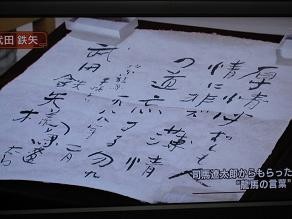 武田 鉄矢
厚情必ずしも
情に非ず 薄情
の道 忘るる勿れ
武田鉄矢様
司馬遼太郎からもらった
“龍馬の言葉”